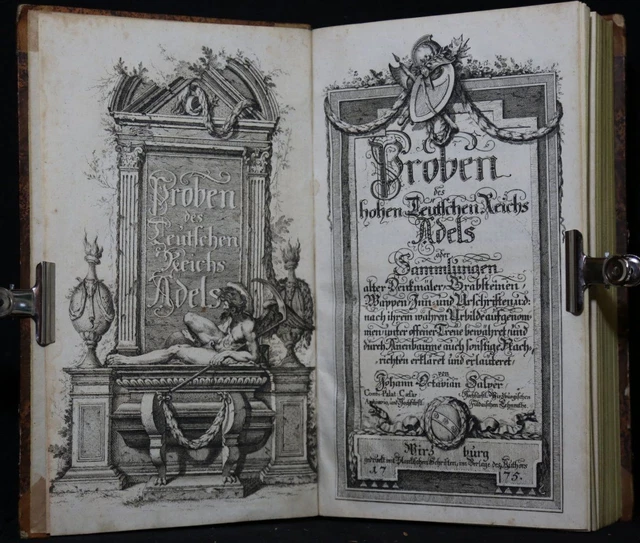 Proben
des
Teutschen
Reichs
Adels
Proben
des
hohen Teutschen Reichs
Adels
oder
Sammlungen
alter Denkmäler, Grabsteinen,
Wappen, Inn- und Urschriften u.d.
nach ihrem wahren Urbilde aufgenom-
men, unter offener Treue bewähret, und
durch Ahnenbäume, auch sonstige Nach-
richten erkläret und erläuteret,
von
Johann Octavian Salver
Würzburg
gedruckt mit
im Verlage des Authors
1775.